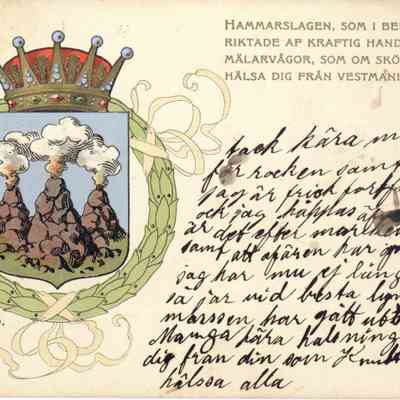 HAMMARSLAGEN, SOM I BE
RIKTADE AF KRAFTIG HAND
MÄLARVÅGOR, SOM OM SKÖ
HÄLSA DIG FRÅN VESTMAN
tack kära m
för rocken samt
jag är frisk fortfa
och jag hoppas
är det efter
samt att afären har
jag har nu ej läng
så jar vid besta
marssen har gått
Många kära halsning
dig från din som Knut
hälssa alla